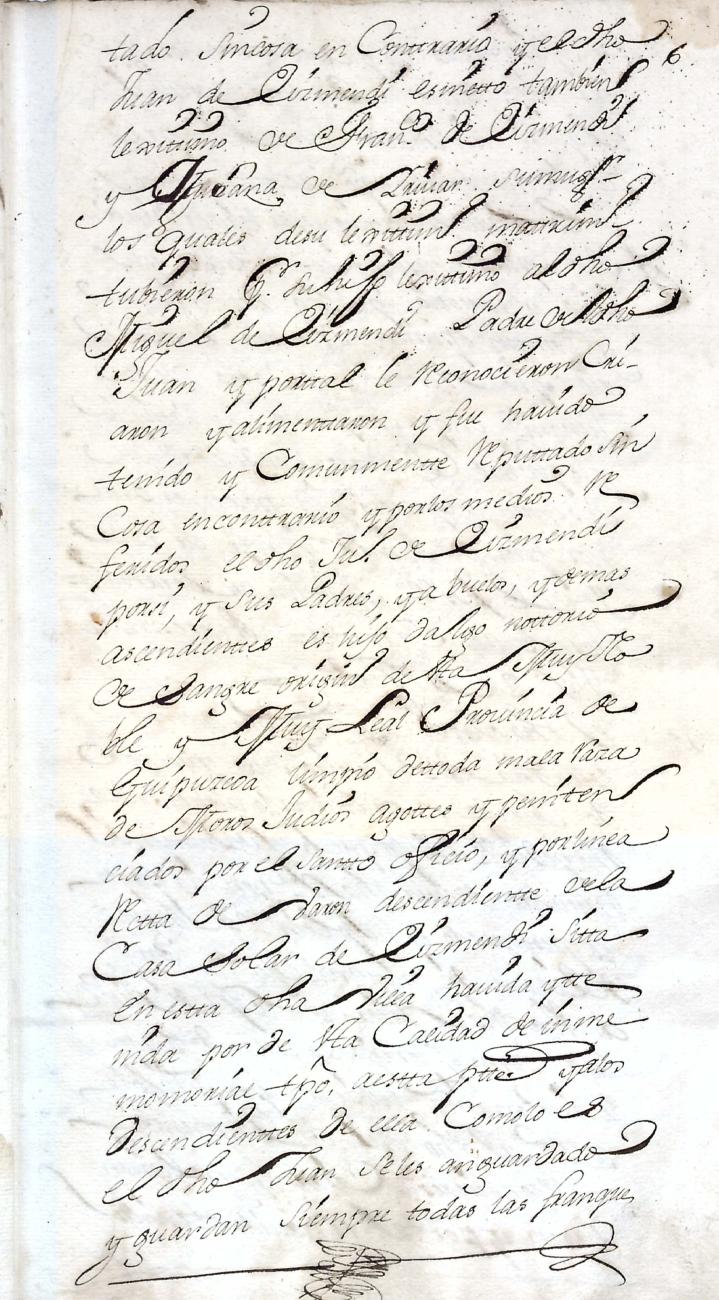 tado. sin cosa en Conttrario y el dho
6
Juan de Lizmendi es nietto tambien
lexittimo de Franco. de Lizmendi
y de sumuger
los quales de su lexittimo matrim.o
tubieron y. su hijo lexittimo al dho
Miguel de Lizmendi Padre del dho
Juan y por ttal le Reconocieron Cri-
aron y alimenttaron y fue havido
tenido y Comunmentte Reputtado sin
Cosa en conttrario y por los medios Re
feridos el dho Ju.o de Lizmendi
por si, y sus Padres, y abuelos, y demas
ascendienttes es hijo dalgo nottorio
de Sangre origin.o de Stta Muy No
ble y Muy Leal Provincia de
Guipuzcoa limpio de ttoda mala Raza
de Moros Judios agottes y peniten
ciados por el Santto oficio, y por linea
Rectta de Varon descendientte de la
Casa Solar de Lizmendi Sitta
En estta dha Villa havida y tte
nida por de Stta Calidad de inme
morial tpo, a estta ptte y a los
descendienttes de ella Como lo es
el dho Juan se les an guardado
y guardan siempre todas las franque